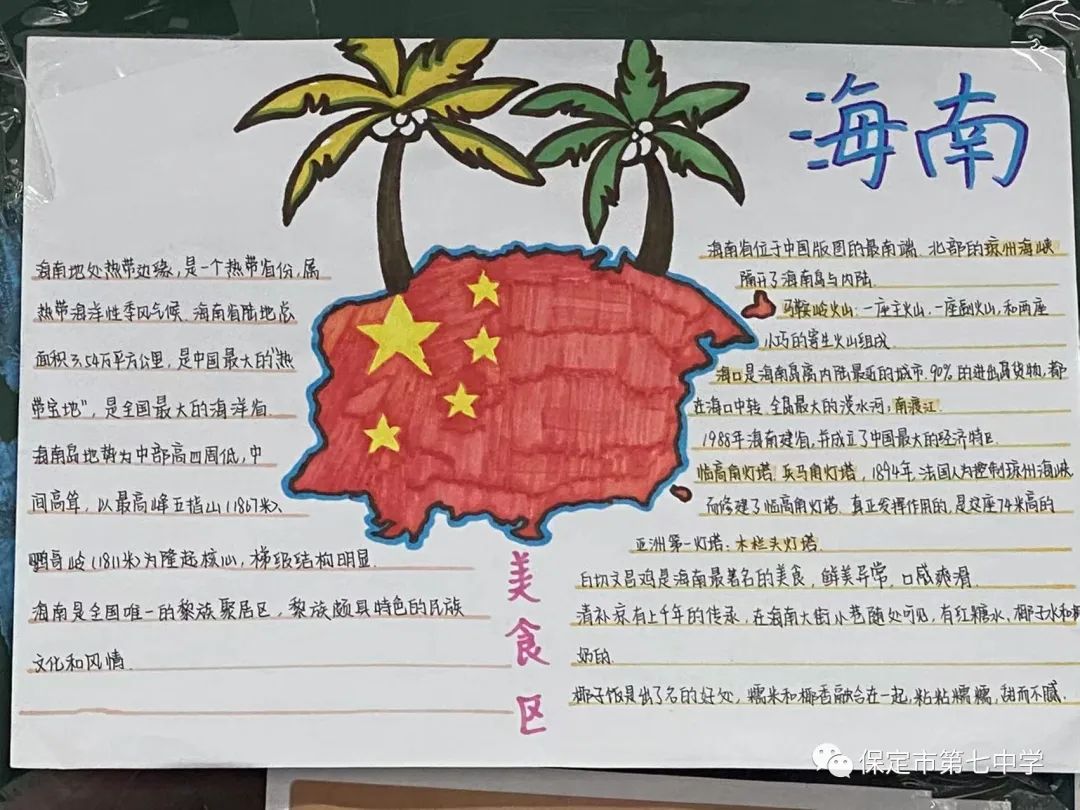 海南
海南地处热带边缘,是一个热带省份,属
热带海洋性季风气候.海南省陆地总
面积3.54万平方公里,是中国最大的“热
带宝地”,是全国最大的海洋省.
海南岛地势为中部高四周低,中
间高耸,以最高峰五指山(1867米)、
鹦哥岭(1811米)为隆起核心,梯级结构明显.
海南是全国唯一的黎族聚居区,黎族颇具特色的民族
文化和风情.
海南省位于中国版图的最南端.北部的琼州海峡
隔开了海南岛与内陆.
马鞍岭火山:一座主火山.一座副火山,和两座
小巧的寄生火山组成
海口是海南岛离内陆最近的城市.90%的进出岛货物,都
在海口中转.全岛最大的淡水河:南渡江.
1988年海南建省,并成立了中国最大的经济特区.
临高角灯塔.兵马角灯塔,1894年,法国人为控制琼州海峡
而修建了临高角灯塔.真正发挥作用的,是这座74米高的
亚洲第一灯塔:木栏头灯塔.
美食区
白切文昌鸡是海南最著名的美食,鲜美异常.口感爽滑.
清补凉有上千年的传承,在海南大街小巷随处可见,有红糖水,椰子水和
奶的.
椰子饭是出了名的好处,糯米和椰香融合在一起,粘粘糯糯,甜而不腻.
保定市第七中学